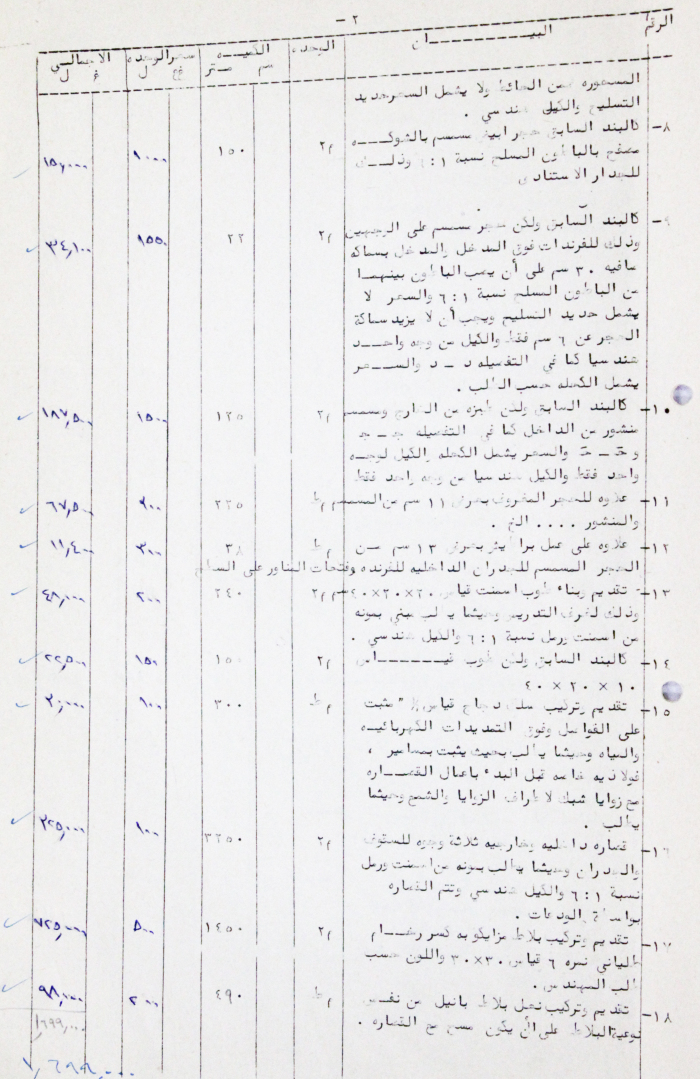 - ٢
الرقم البيـــــــان الوحده الكميـــه سعر الوحده الاجمالــي
م ستر ل ل
المسموره ضمن الحائط ولا يشمل السعر حديد
التسليح والكيل هندسي .
٨- كالبند السابق حجر ابيض مسمسم بالشوكـــه م٢ ١٥٠ ١٠٠٠ ١٥٠,٠٠٠
مصفح بالباطون المسلح نسبة ١ : ٦ وذلــك
للجدار الاستنادي
٩- كالبند السابق ولكن حجر مسمسم على الوجهين م٢ ٢٢ ١٥٥٠ ٣٤,١٠٠
وذلك للفرندات فوق المدخل والمدخل بسماكه
صافيه ٣٠ سم على أن يصب الباطون بينهمــا
من الباطون المسلح نسبة ١ : ٦ والسعر لا
يشمل حديد التسليح ويجب أن لا يزيد سماكة
الحجر عن ٦ سم فقط والكيل من وجه واحــد
هندسيا كما في التفصيله د - د والســعر
يشمل الكحله حسب الطلب .
١٠- كالبند السابق ولكن طبزه من الخارج ومسمسم م٢ ١٢٥ ١٥٠٠ ١٨٧,٥٠٠
منشور من الداخل كما في التفصيله ج - ج
و خ - خ والسعر يشمل الكحله والكيل لوجــه
واحد فقط والكيل هندسيا من وجه واحد فقط
١١- علاوه للحجر المفروف بعرض ١١ سم من المسمسم م ط ٢٢٥ ٣٠٠ ٦٧,٥٠٠
والمنشور .... الخ .
١٢- علاوه على عمل براطيش بعرض ١٣ سم مــن م ط ٣٨ ٣٠٠ ١١,٤٠٠
الحجر المسمسم للجدران الداخليه للفرنده وفتحات المناور على السطح
١٣- تقديم وبناء طوب اسمنت قياس ٢٠×٢٠×٤٠سم م٢ ٢٤٠ ٢٠٠ ٤٨,٠٠٠
وذلك لغرف التدريس وحيثما يطلب مبني بمونه
من اسمنت ورمل نسبة ١ : ٦ والكيل هندسي .
١٤- كالبند السابق ولكن طوب قيــــــاس م٢ ١٥٠ ١٥٠ ٢٢,٥٠٠
١٠ × ٢٠ × ٤٠
١٥- تقديم وتركيب سلك دجاج قياس " مثبت م ط ٣٠٠ ١٠٠ ٣٠,٠٠٠
على الفواصل وفوق التمديدات الكهربائيــه
والمياه وحيثما يطلب بحيث يثبت بمسامير ،
فولاذيه خاصه قبل البدء باعمال القصــاره
مع زوايا شبك لاطراف الزوايا والشمع وحيثما
يطلب .
١٦- قصاره داخليه وخارجيه ثلاثة وجوه للسقوف م٢ ٣٢٥٠ ١٠٠ ٣٢٥,٠٠٠
والجدران وحيثما يطلب بمونه من اسمنت ورمل
نسبة ١ : ٦ والكيل هندسي وتتم القصاره
بواسطة الودعات .
١٧- تقديم وتركيب بلاط مزايكو به كسر رخــام م٢ ١٤٥٠ ٥٠٠ ٧٢٥,٠٠٠
طلياني نمره ٦ قياس ٣٠×٣٠ واللون حسب
طلب المهندس .
١٨- تقديم وتركيب نعل بلاط بانيل من نفــس م ط ٤٩٠ ٢٠٠ ٩٨,٠٠٠
نوعية البلاط على أن يكون مسح مع القصاره . ١,٦٩٩,٠٠٠
١,٦٩٩,٠٠٠